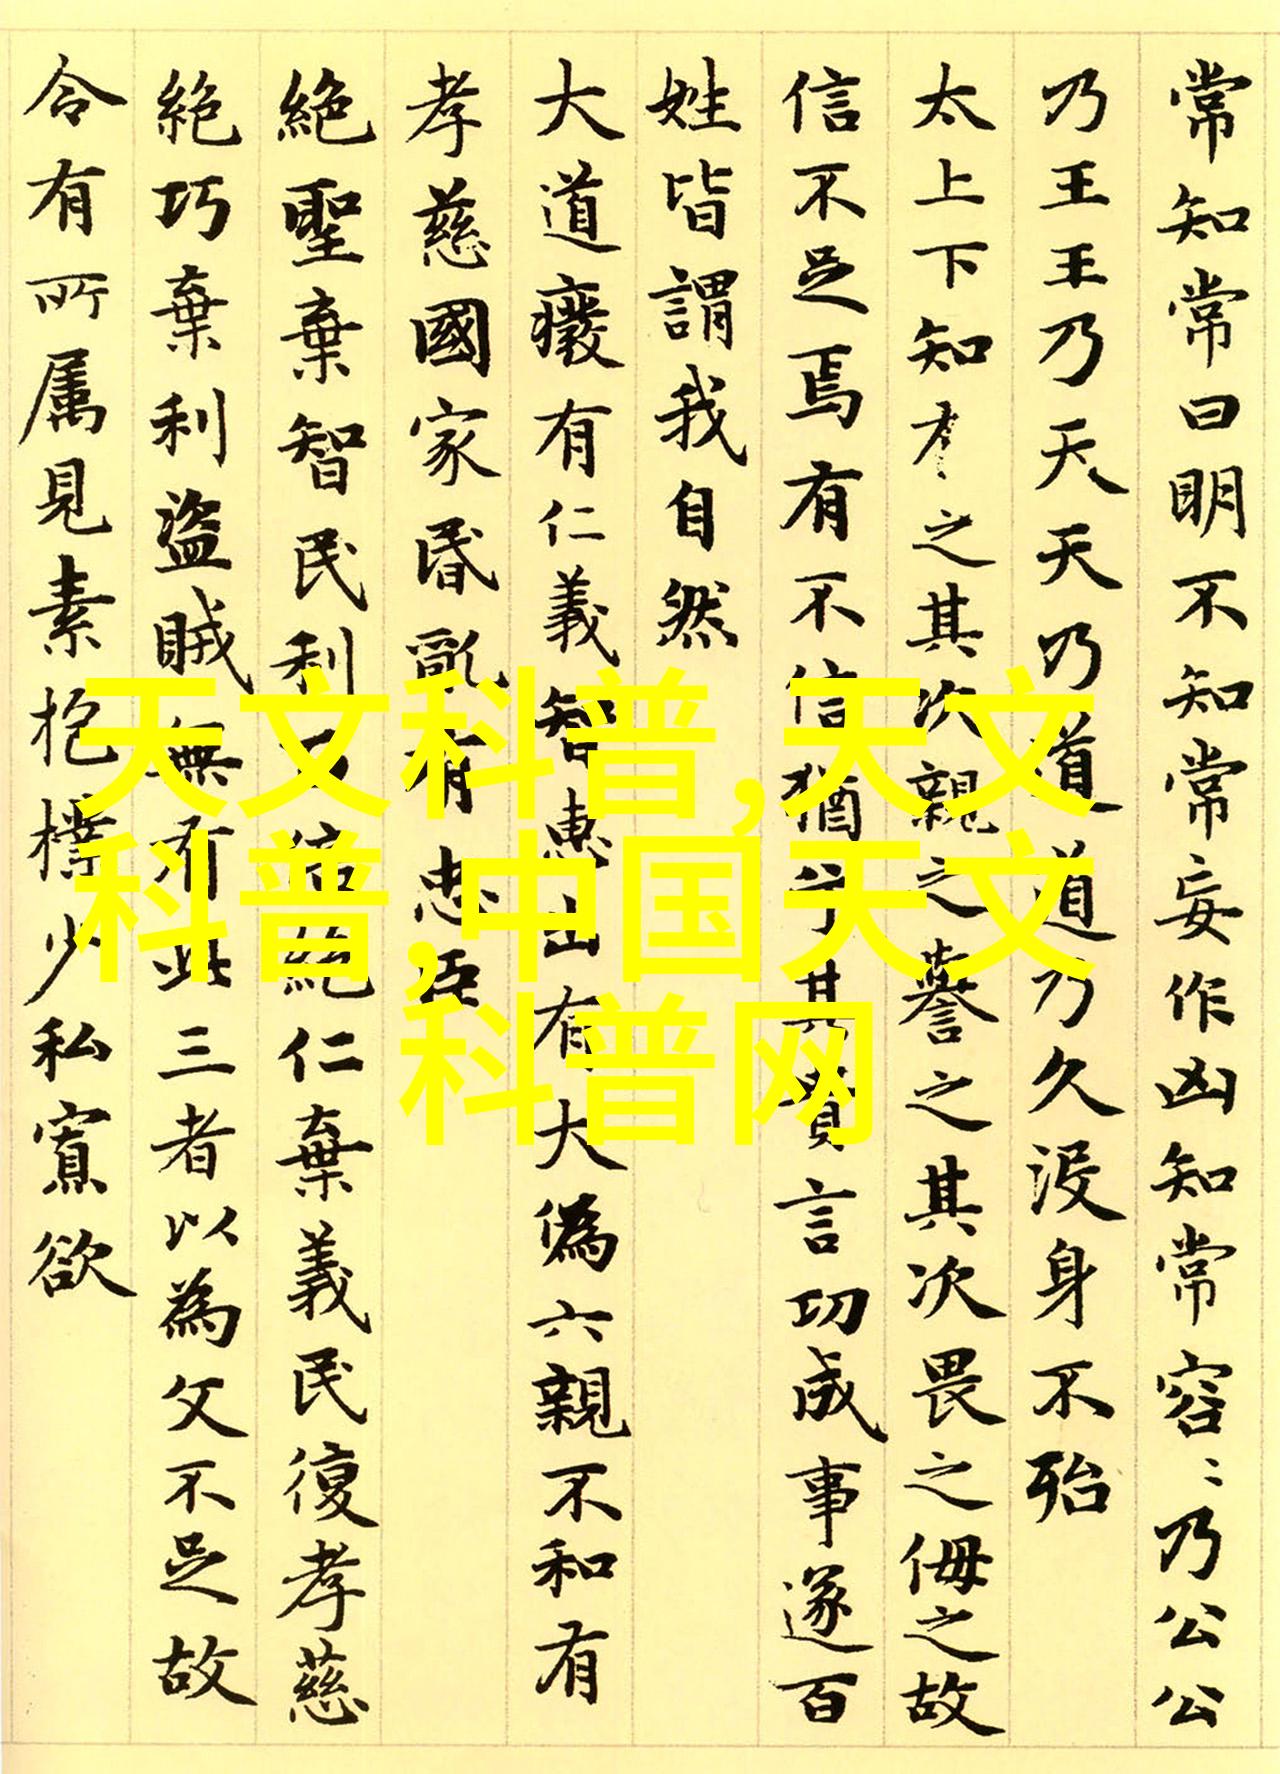 常知常曰明不知知常妄作凶知常容〻乃公公
乃王王乃天天乃道道乃久沒身不殆
太上下知有之其次親之譽之其次畏之侮之故
信不足焉有不信猶兮其貴言功成事遂百
姓皆謂我自然
大道廢有仁義智惠出有大偽六親不和有
孝慈國家昏亂有忠臣
絕聖棄智民利百倍絕仁棄義民復孝慈
絕巧棄利盜賊無有此三者以為文不足故
令有所属見素抱樸少私寡欲
天文科普,天文
科普,中国天文
科普网